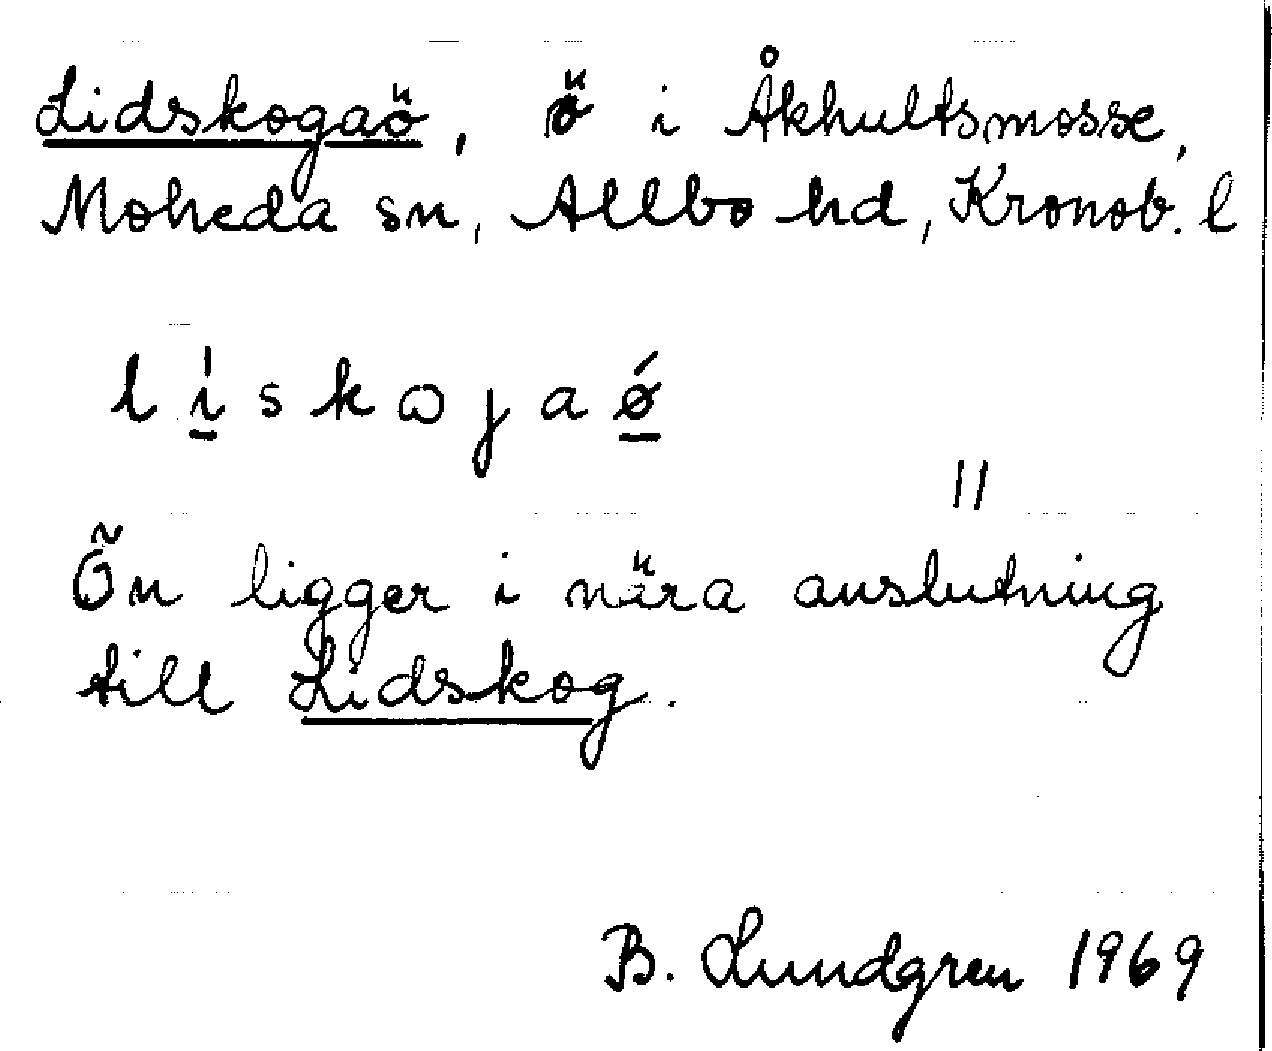 Lidskogaö, ö i Åkhultsmosse,
Moheda sn, Allbo hd, Kronob. l
lískɷjaǿ
"
Ön ligger i nära anslutning
till Lidskog.
B. Lundgren 1969